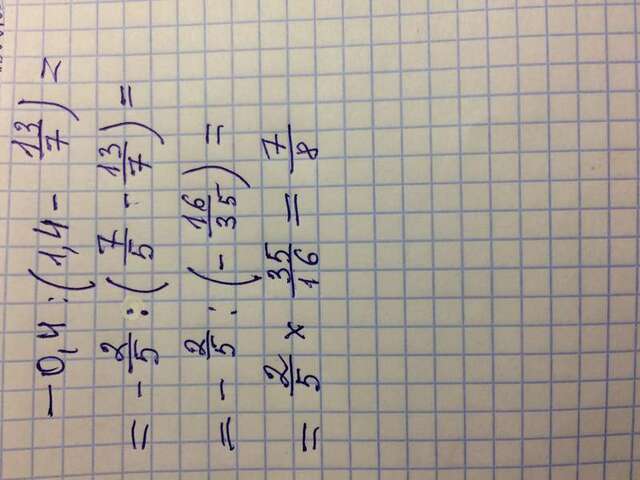 -0,4 : (1,4 - 13/7) =
= - 2/5 : (7/5 - 13/7) =
= - 2/5 : (- 16/35) =
= 2/5 × 35/16 = 7/8